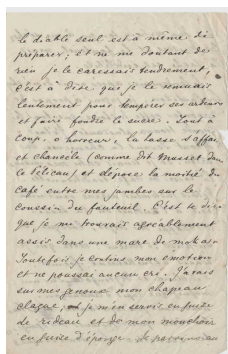 le diable seul est à même de
préparer; et ne me doutant de
rien je le caressais tendrement,
c'est à dire que je le remuais
lentement pour tempérer ses ardeurs
et faire fondre le sucre. Tout à
coup, o horreur, la tasse s'affai
et chancèle (comme dit Musset dans
le Pélican) et dépose la moitié du
café entre mes jambes sur le
coussin du fauteuil. C'est te dire
que je me trouvais agréablement
assis dans une mare de moka.
Toutefois je contins mon émotion
et ne poussai aucun cri. J'avais
sur mes genoux mon chapeau
claque; je m'en servis en guise
de rideau et de mon mouchoir
en guise d'éponge. Je parvins